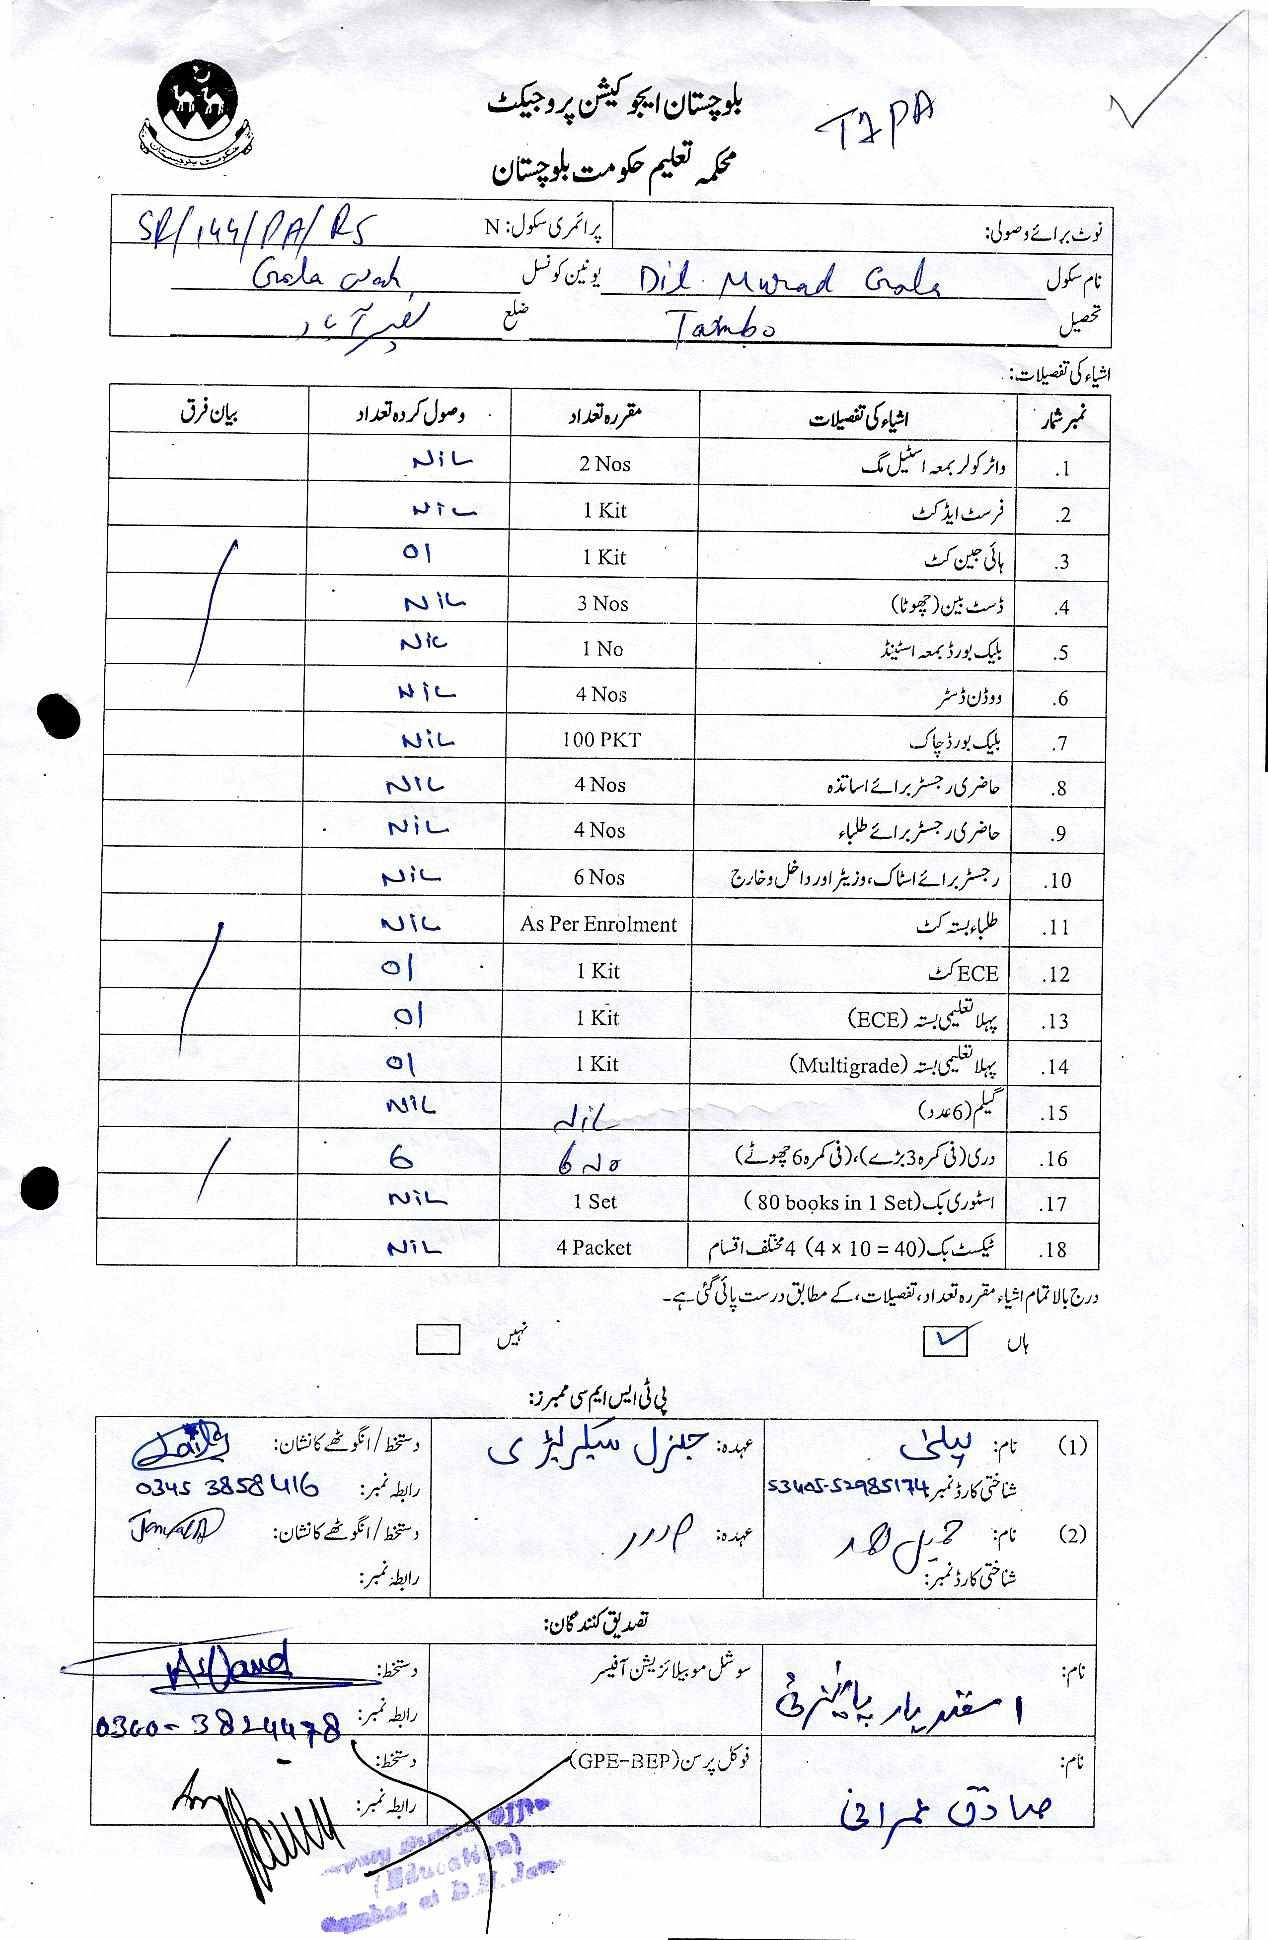 بلوچستان ایجوکیشن پروجیکٹ
محکمہ تعلیم حکومت بلوچستان
حکومت بلوچستان
نوٹ برائے وصولی: پرائمری سکول: N SR/144/PA/RS
نام سکول Dil Murad Gola یونین کونسل Gola wah
تحصیل Tambo ضلع نصیر آباد
اشیاء کی تفصیلات:
نمبر شمار اشیاء کی تفصیلات مقررہ تعداد وصول کردہ تعداد بیان فرق
1. واٹر کولر بمعہ اسٹیل مگ 2 Nos NiL
2. فرسٹ ایڈ کٹ 1 Kit NiL
3. ہائی جین کٹ 1 Kit 01
4. ڈسٹ بین (چھوٹا) 3 Nos NiL
5. بلیک بورڈ بمعہ اسٹینڈ 1 No NiL
6. ووڈن ڈسٹر 4 Nos NiL
7. بلیک بورڈ چاک 100 PKT NiL
8. حاضری رجسٹر برائے اساتذہ 4 Nos NiL
9. حاضری رجسٹر برائے طلباء 4 Nos NiL
10. رجسٹر برائے اسٹاک، وزیٹر اور داخل و خارج 6 Nos NiL
11. طلباء بستہ کٹ As Per Enrolment NiL
12. ECE کٹ 1 Kit 01
13. پہلا تعلیمی بستہ (ECE) 1 Kit 01
14. پہلا تعلیمی بستہ (Multigrade) 1 Kit 01
15. گیلم (6 عدد) NiL NiL
16. دری (فی کمرہ 3 بڑے)، (فی کمرہ 6 چھوٹے) 6 No 6
17. اسٹوری بک (80 books in 1 Set) 1 Set NiL
18. ٹیکسٹ بک (4 × 10 = 40) 4 مختلف اقسام 4 Packet NiL
درج بالا تمام اشیاء مقررہ تعداد، تفصیلات، کے مطابق درست پائی گئی ہے۔
ہاں نہیں
پی ٹی ایس ایم سی ممبرز:
(1) نام: عہدہ: جنرل سیکریٹری دستخط/انگوٹھے کا نشان:
شناختی کارڈ نمبر 53405-52985174 رابطہ نمبر: 0345 3858416
(2) نام: عہدہ: صدر دستخط/انگوٹھے کا نشان:
شناختی کارڈ نمبر: رابطہ نمبر:
تصدیق کنندگان:
نام: سوشل موبیلائزیشن آفیسر دستخط:
اسفندیار رابطہ نمبر: 0340-3824478
نام: فوکل پرسن (GPE-BEP) دستخط:
صادق عمرانی رابطہ نمبر:
(Education)